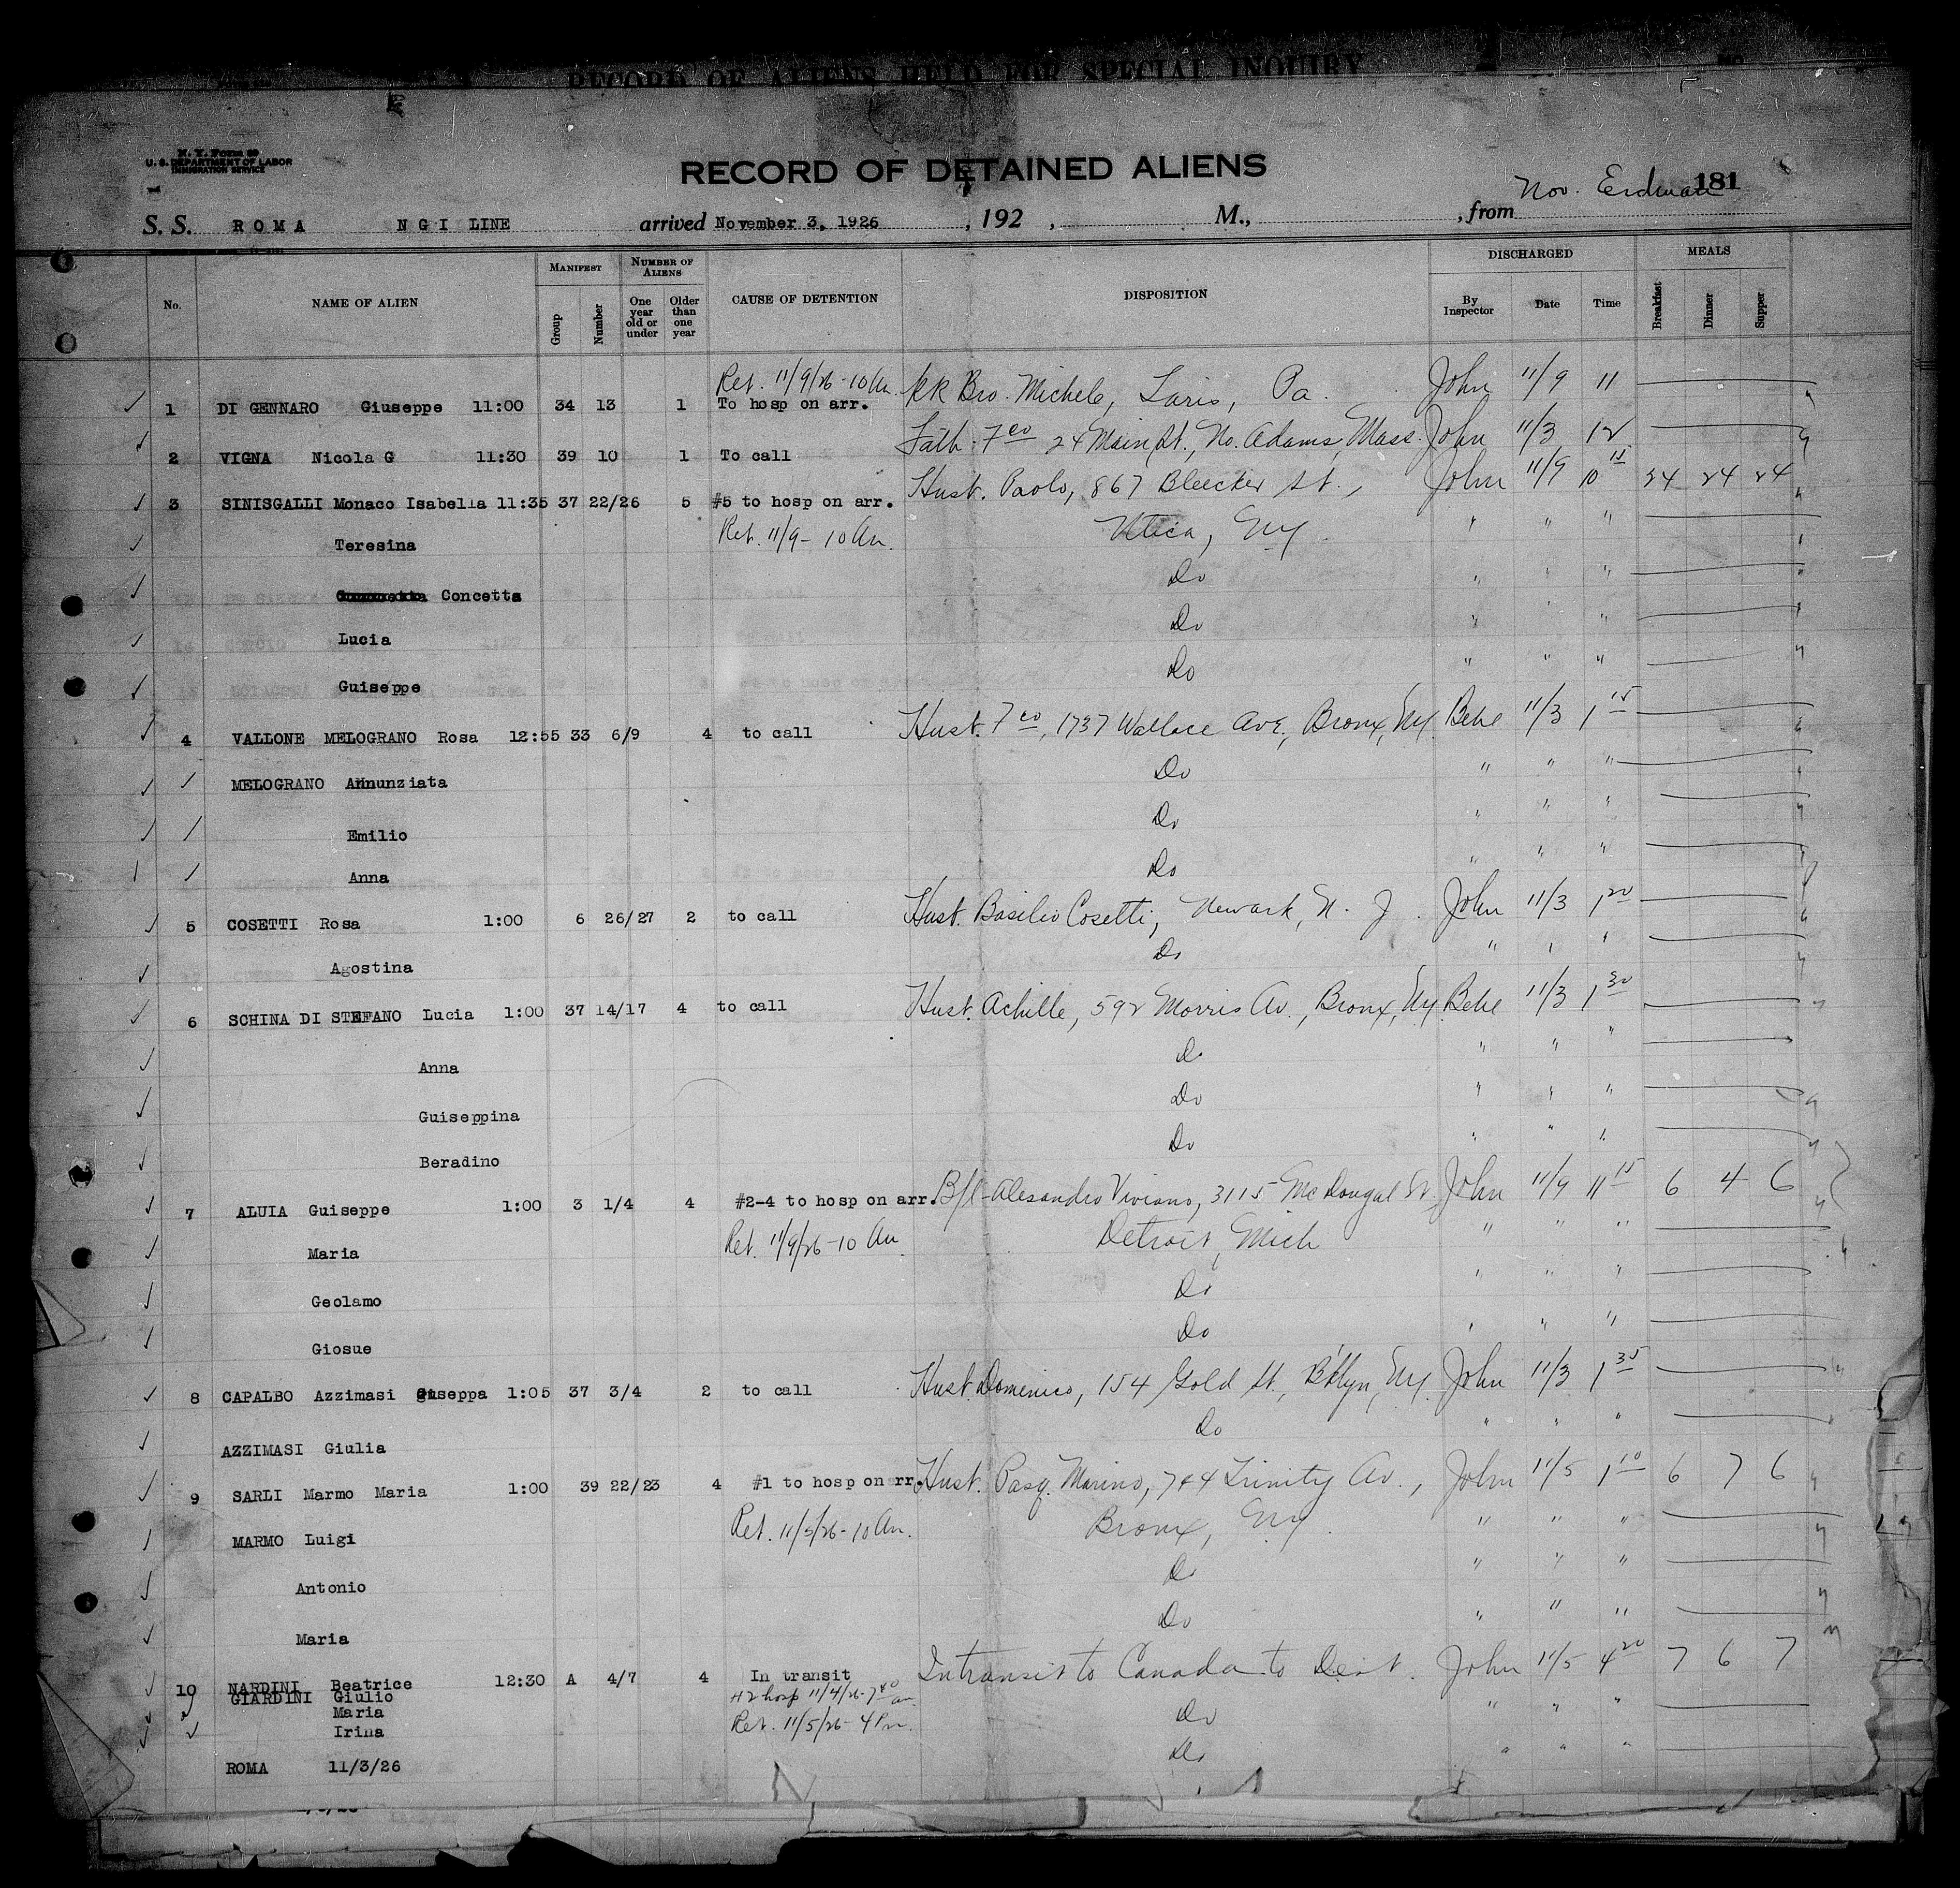 RECORD OF ALIENS HELD FOR SPECIAL INQUIRY
N. Y. Form 99
U. S. DEPARTMENT OF LABOR
IMMIGRATION SERVICE
RECORD OF DETAINED ALIENS
181
S. S. ROMA NGI LINE arrived November 3, 1926, 192 , M., , from Nov. Erdman
No. NAME OF ALIEN MANIFEST Group Number NUMBER OF ALIENS One year old or under Older than one year CAUSE OF DETENTION DISPOSITION DISCHARGED By Inspector Date Time MEALS Breakfast Dinner Supper
Ret. 11/9/26 - 10 Am.
1 DI GENNARO Giuseppe 11:00 34 13 1 To hosp on arr. Bro. Michele, , Pa. John 11/9 11
2 VIGNA Nicola G 11:30 39 10 1 To call Fath. 7 co 24 Main St., No. Adams, Mass. John 11/3 12
3 SINISGALLI Monaco Isabella 11:35 37 22/26 5 #5 to hosp on arr. Hust. Paolo, 867 Bleecker St., John 11/9 10 15 24 24 24
Teresina Ret. 11/9 - 10 Am. Utica, NY. " " "
Concetta Do " " "
Lucia Do " " "
Guiseppe Do " " "
4 VALLONE MELOGRANO Rosa 12:55 33 6/9 4 to call Hust. 7 co, 1737 Wallace Ave., Bronx, NY. Behe 11/3 1 15
MELOGRANO Annunziata Do " " "
Emilio Do " " "
Anna Do " " "
5 COSETTI Rosa 1:00 6 26/27 2 to call Hust. Basilio Cosetti, Newark, N. J. John 11/3 1 20
Agostina Do " " "
6 SCHINA DI STEFANO Lucia 1:00 37 14/17 4 to call Hust. Achille, 592 Morris Av., Bronx, NY. Behe 11/3 1 30
Anna Do " " "
Guiseppina Do " " "
Beradino Do " " "
7 ALUIA Guiseppe 1:00 3 1/4 4 #2-4 to hosp on arr. B/l - Alesandro Viviano, 3115 McDougal St. John 11/9 11 15 6 4 6
Maria Ret. 11/9/26 - 10 Am. Detroit, Mich " " "
Geolamo Do " " "
Giosue Do " " "
8 CAPALBO Azzimasi Giuseppa 1:05 37 3/4 2 to call Hust. Domenico, 154 Gold St., B'klyn, NY. John 11/3 1 35
AZZIMASI Giulia Do " " "
9 SARLI Marmo Maria 1:00 39 22/23 4 #1 to hosp on rr. Hust. Pasq. Marino, 744 Trinity Av., John 11/5 1 10 6 7 6
MARMO Luigi Ret. 11/5/26 - 10 Am. Bronx, NY. " " "
Antonio Do " " "
Maria Do " " "
10 NARDINI Beatrice 12:30 A 4/7 4 In transit Intransit to Canada to Dest. John 11/5 4 20 7 6 7
GIARDINI Giulio #2 hosp 11/4/26 - 7 40 am.
Maria Do " " "
Irina Ret. 11/5/26 - 4 Pm. Do " " "
ROMA 11/3/26